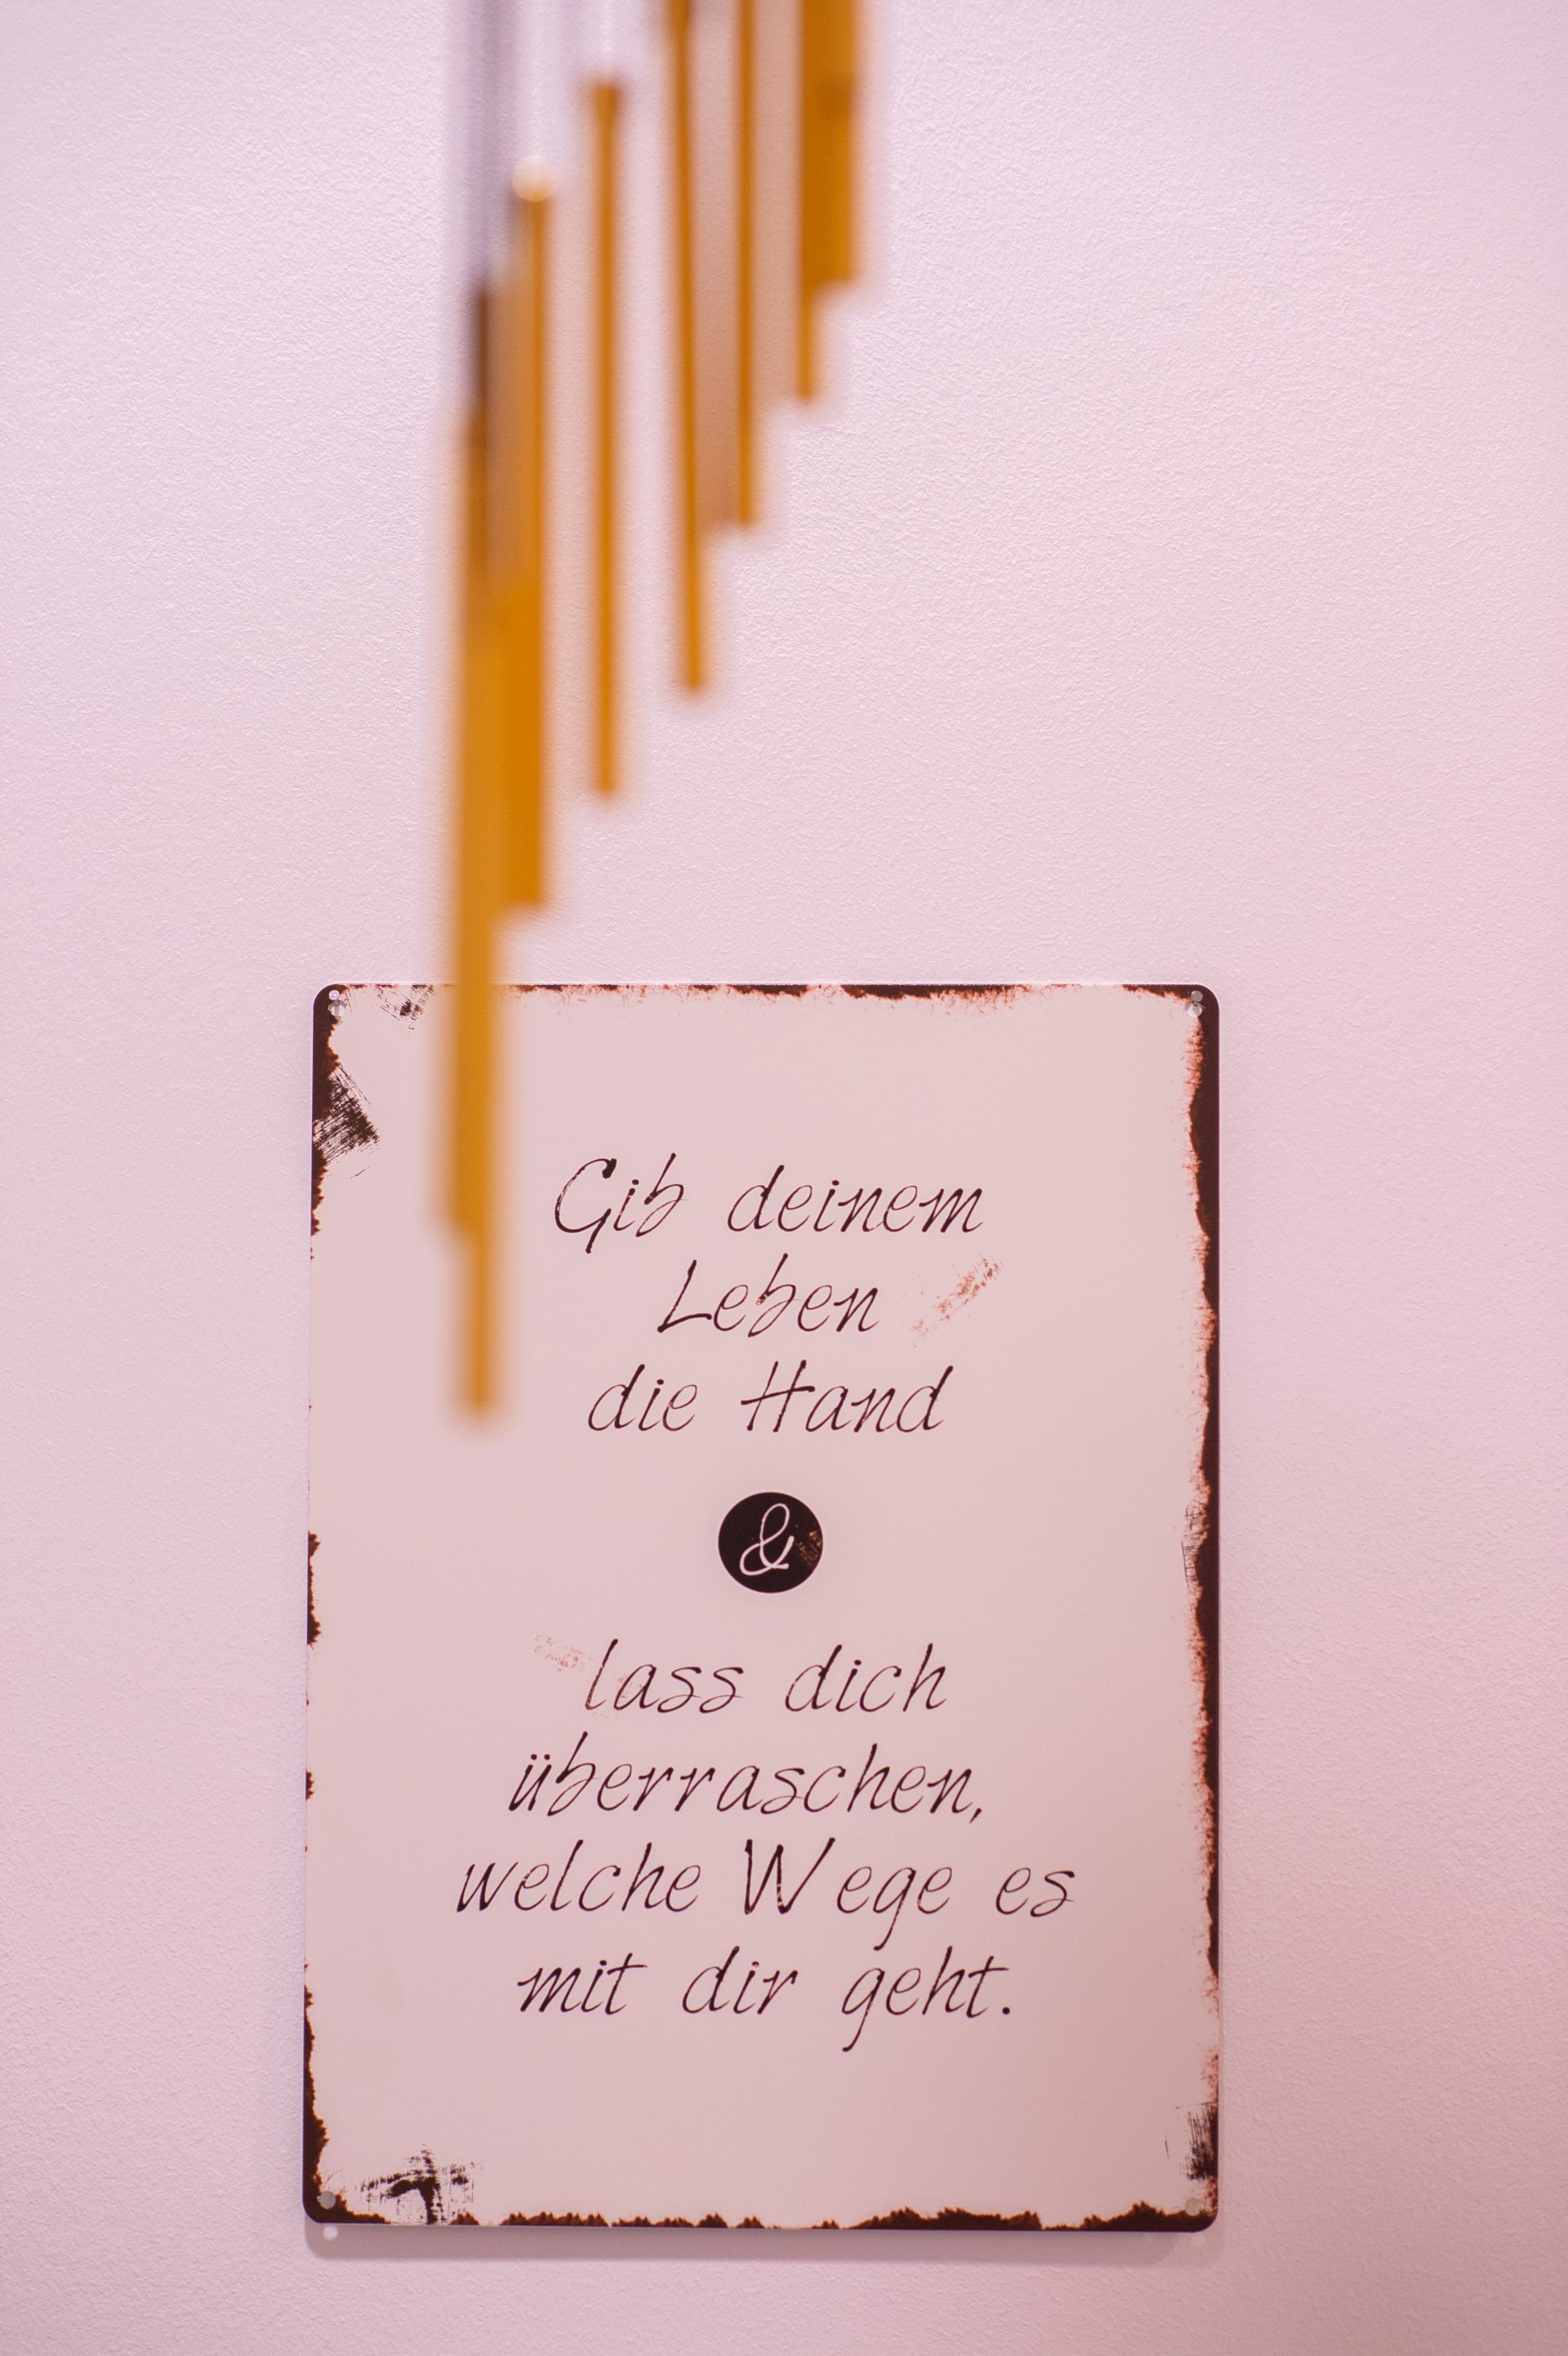 Gib deinem
Leben
die Hand
&
lass dich
überraschen,
welche Wege es
mit dir geht.